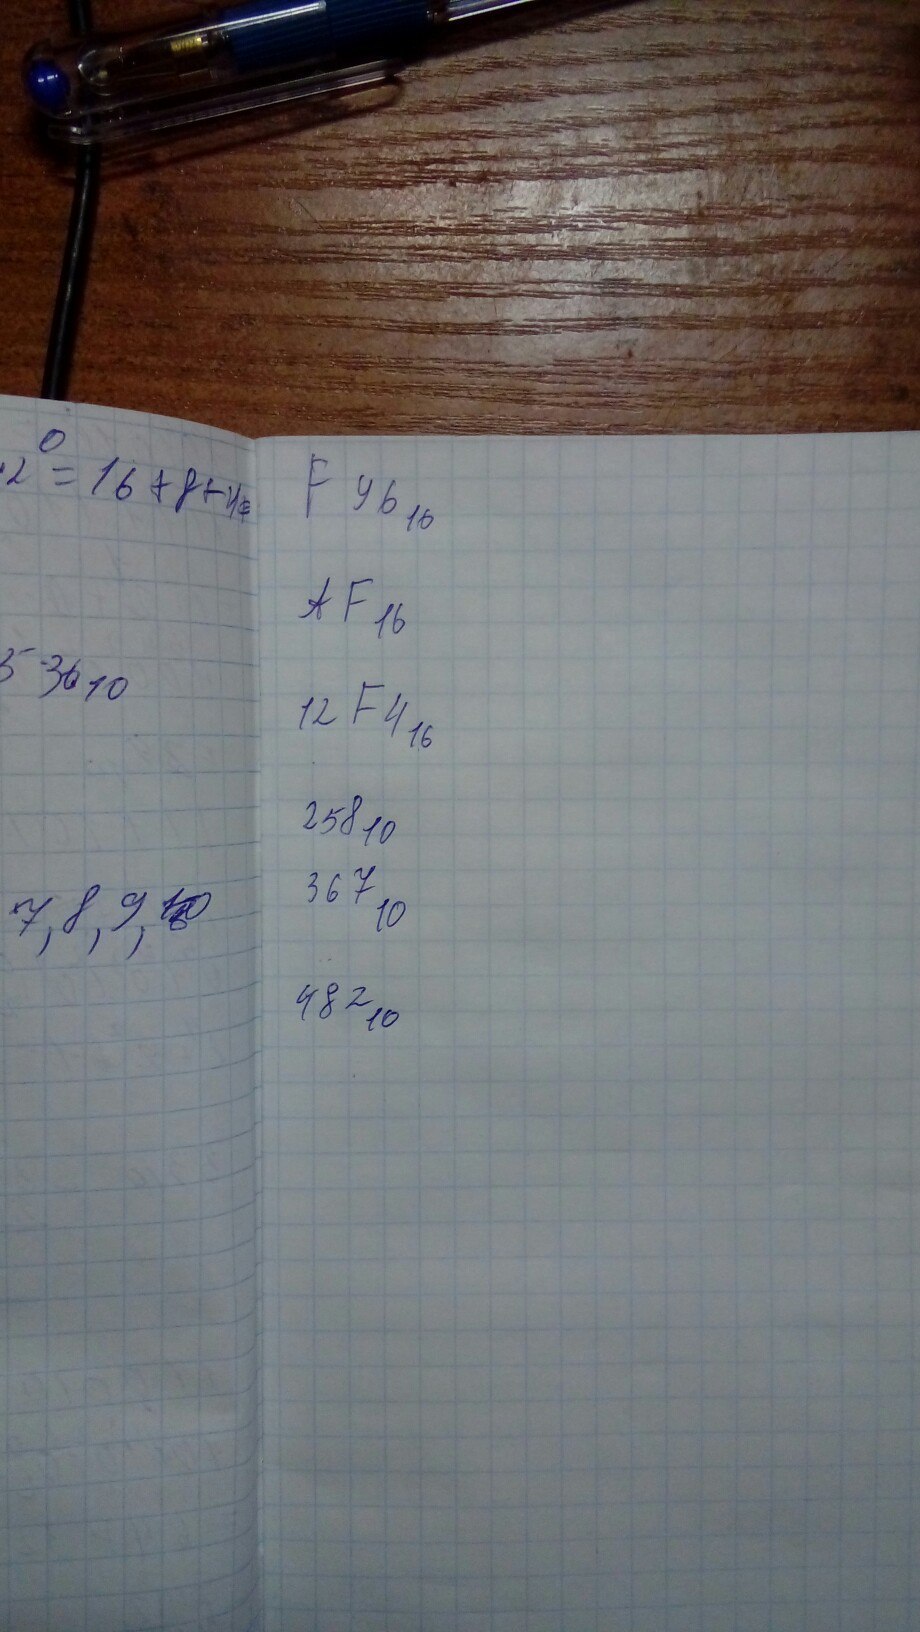 ·2⁰ = 16 + 8 + 4 +
5 36₁₀
7, 8, 9, 10
F 96₁₆
AF₁₆
12F4₁₆
258₁₀
367₁₀
482₁₀